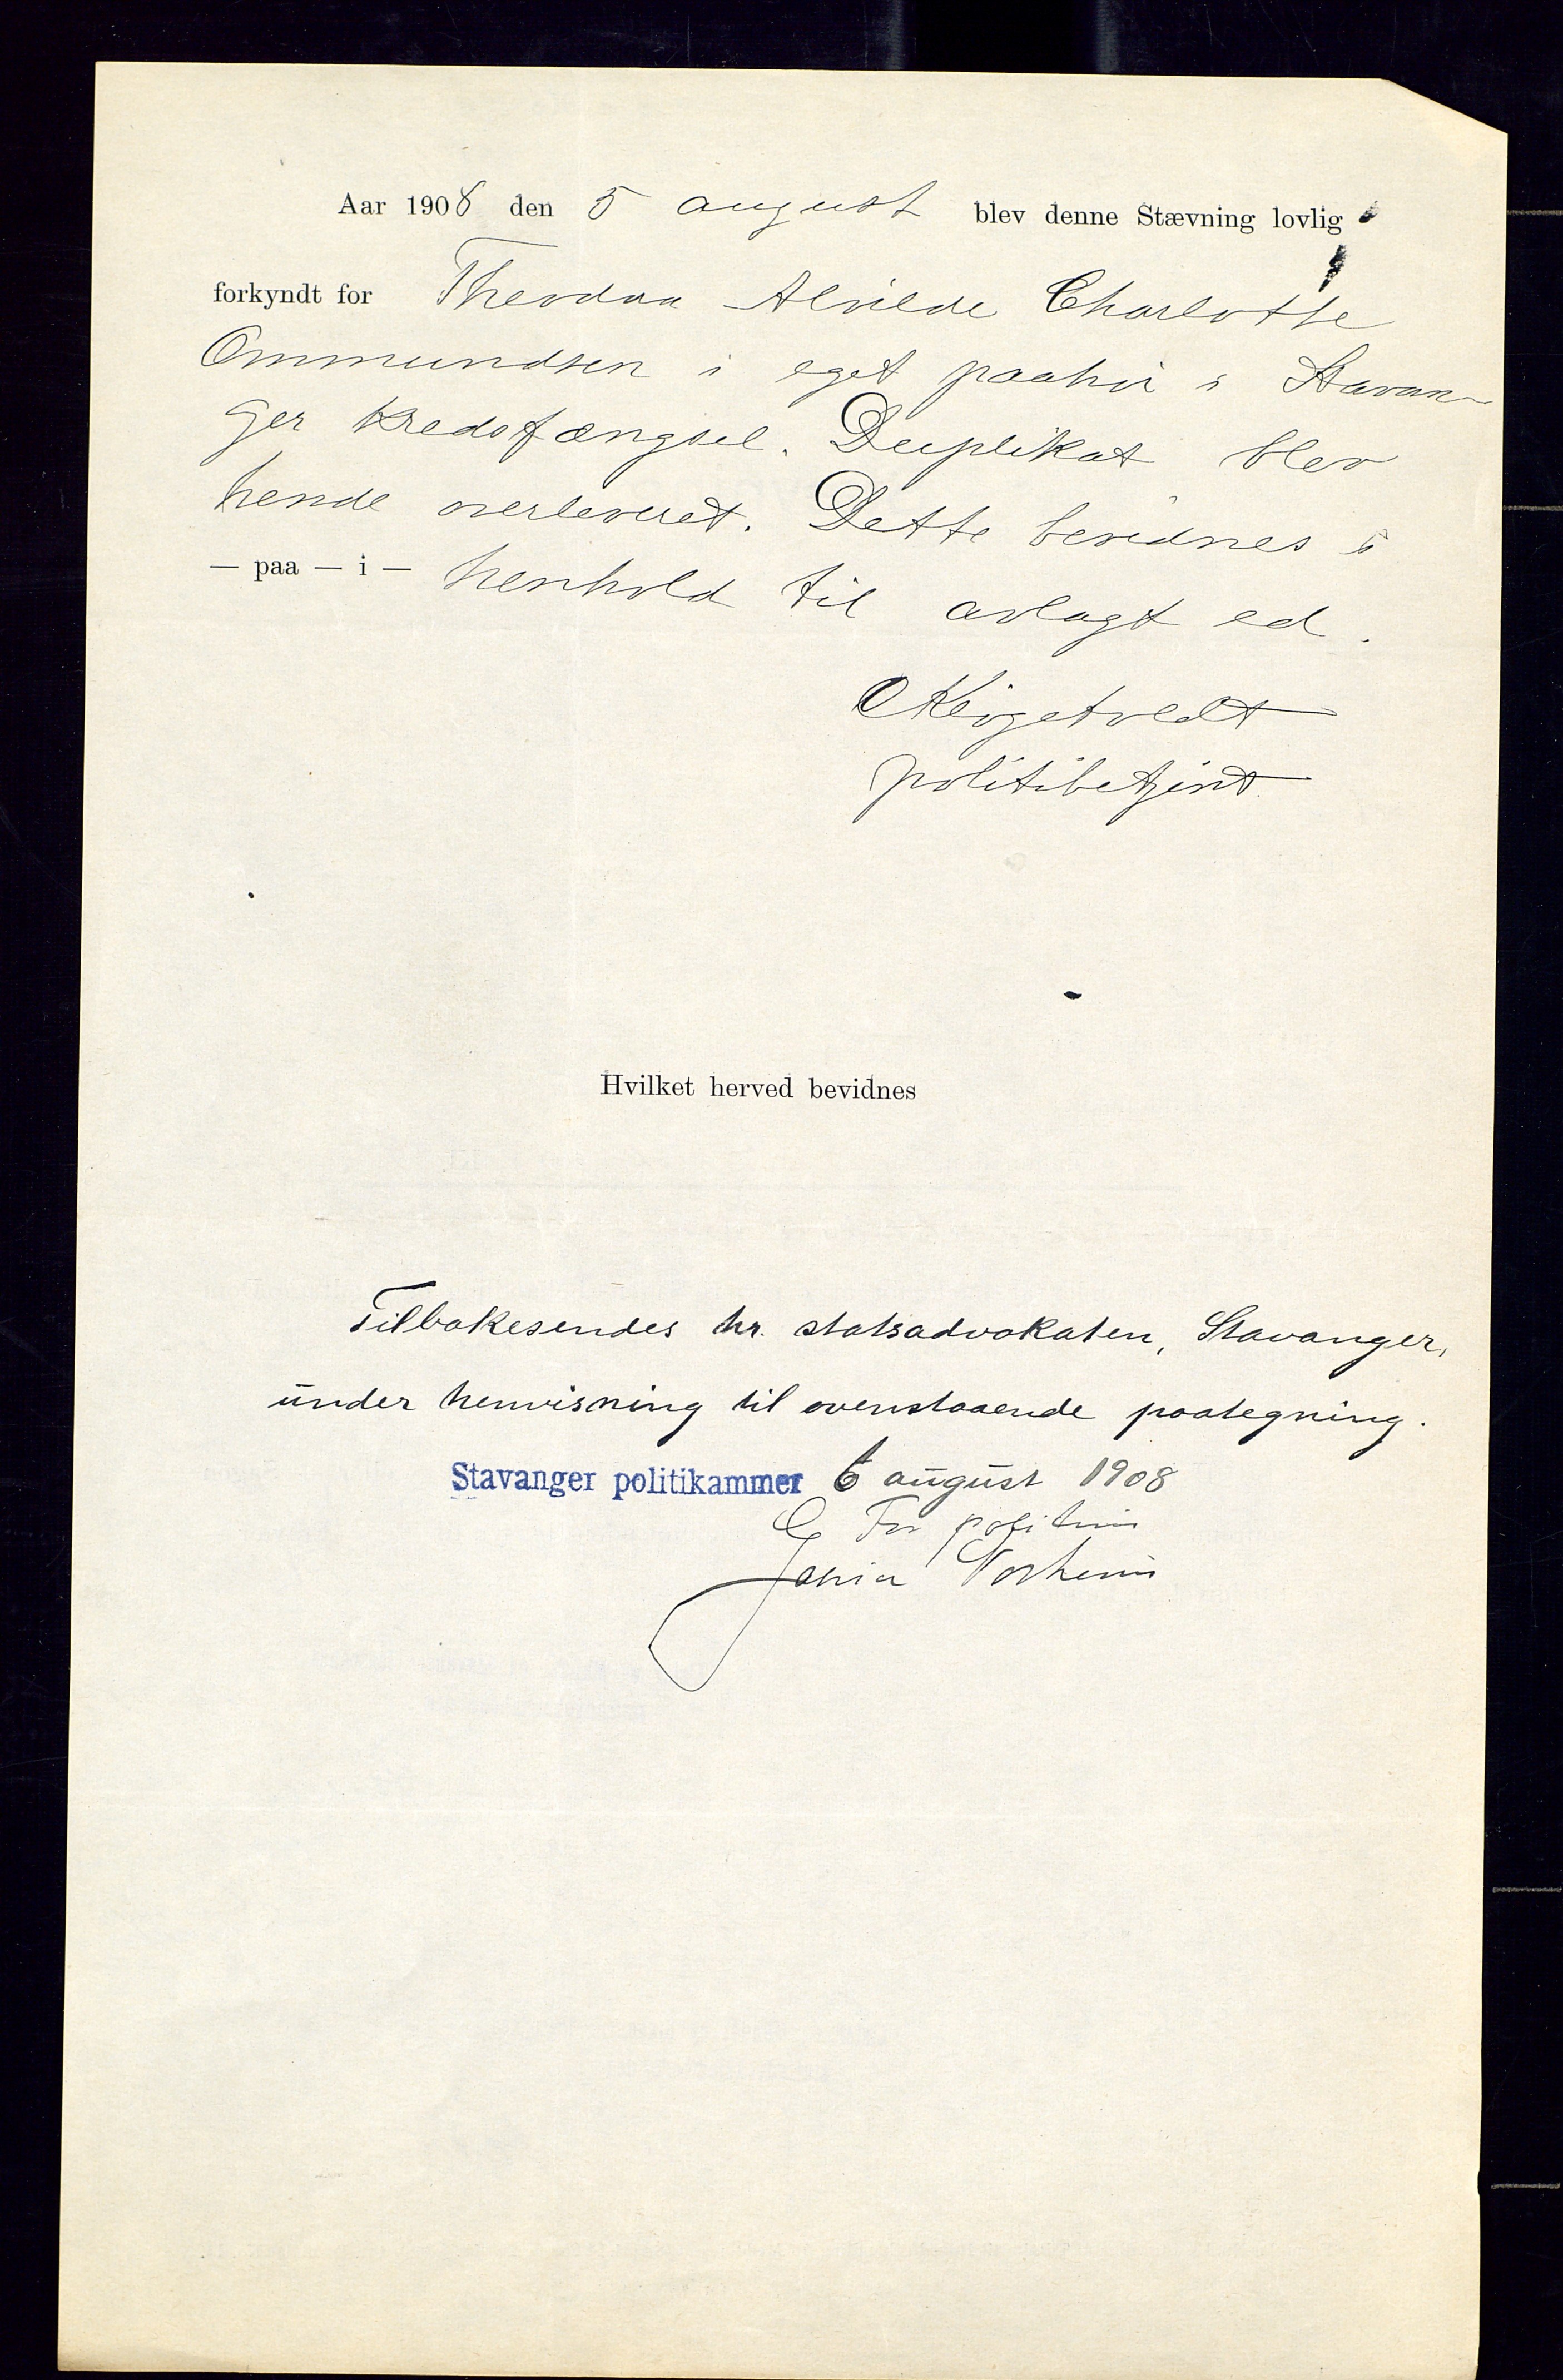 Aar 1908 den 5 august blev denne Stævning lovlig
forkyndt for Theodora Alvilde Charlotte
Ommundsen i eget paahør i Stavan-
ger kredsfængsel. Duplikat blev
hende overleveret. Dette bevidnes i
— paa — i — henhold til avlagt ed.
politibetjent
Hvilket herved bevidnes
Tilbakesendes hr. statsadvokaten, Stavanger,
under henvisning til ovenstaaende paategning.
Stavanger politikammer 6 august 1908